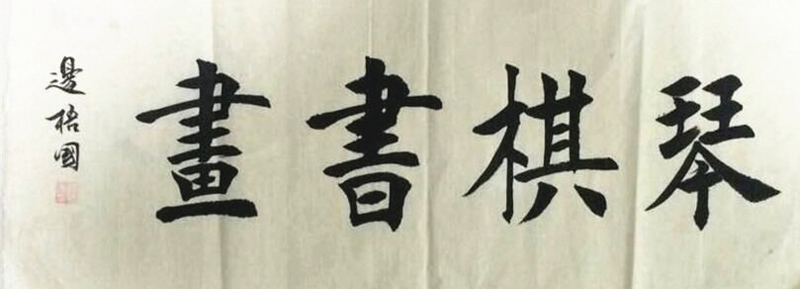 琴棋書畫
邊梧國